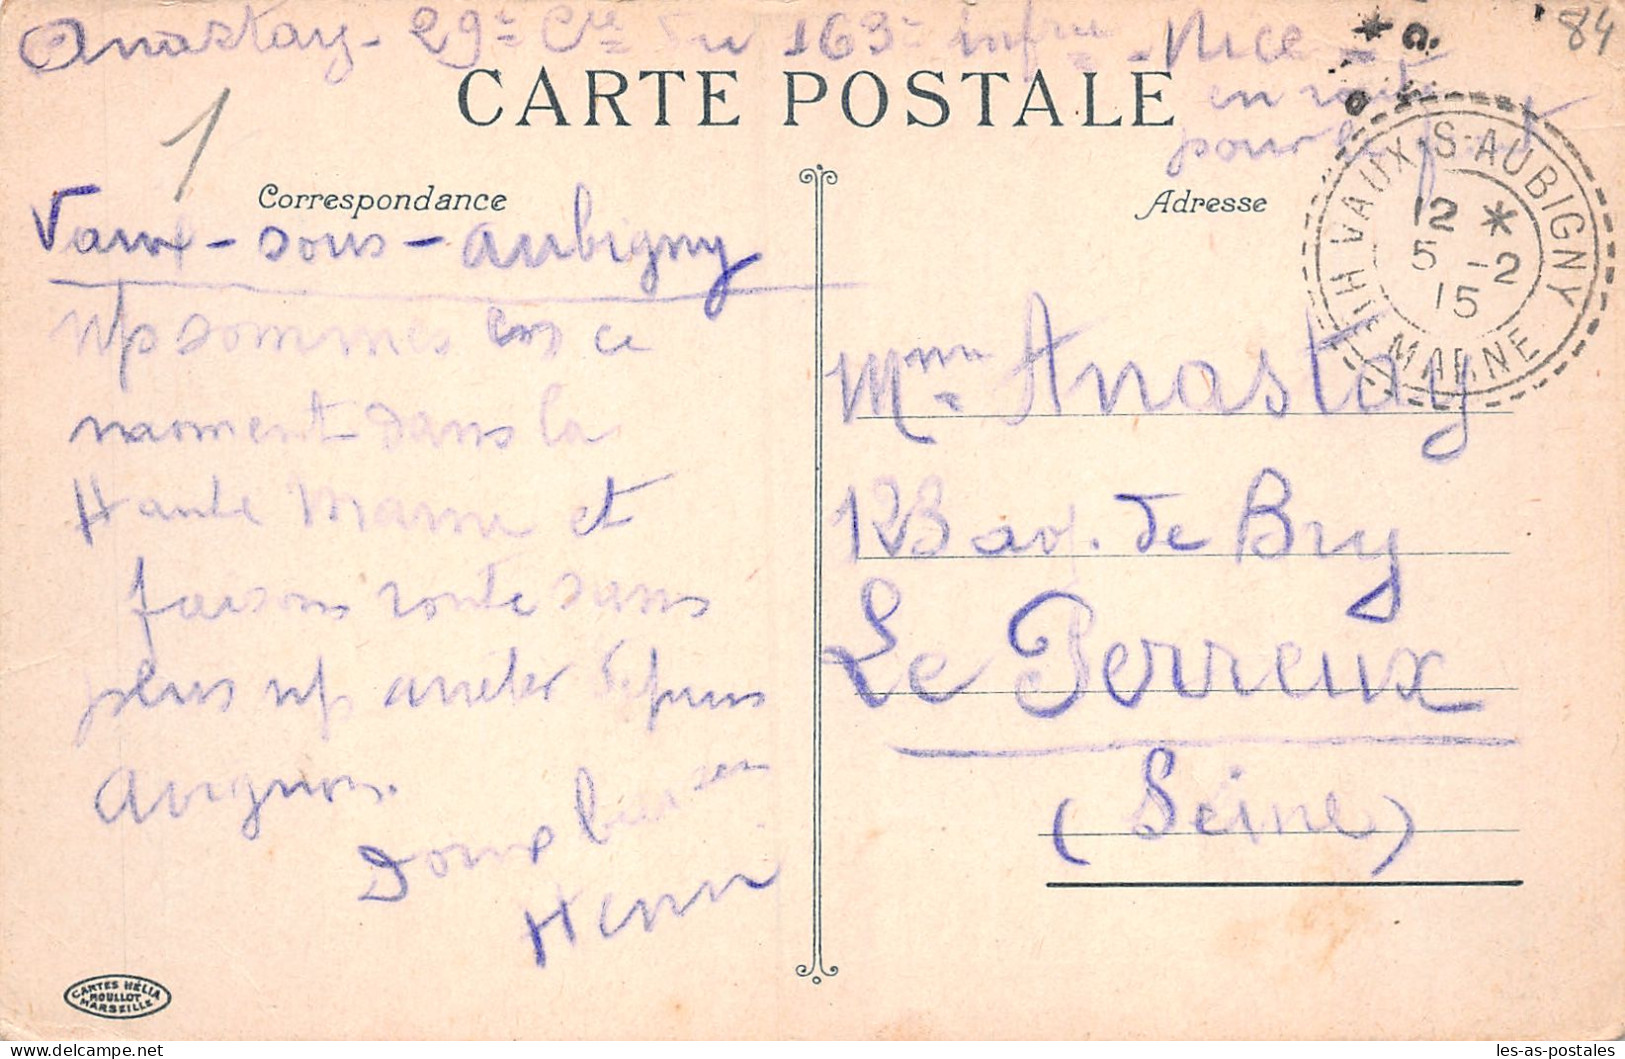 Anastay - 29e Cie du 163e infrie - Nice -
en route
pour le
84
CARTE POSTALE
1
Correspondance
Adresse
VAUX-S-AUBIGNY
12 *
5 -2
15
HTE MARNE
Vaux-sous-aubigny
ns sommes en ce
moment dans la
Haute Marne et
faisons route sans
plus ns arrêter depuis
Avignon.
Doux baisers
Henri
Mme Anastay
123 av. de Bry
Le Perreux
(Seine)
CARTES HÉLIA
MOULLOT
MARSEILLE
les-as-postales